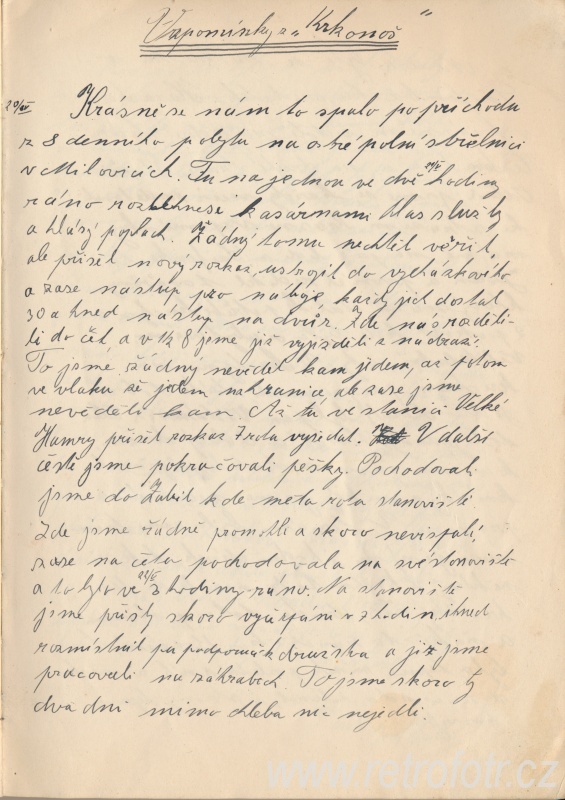 Vzpomínky z „Krkonoš"
20/V Krásně se nám to spalo po příchodu
z 8 denního pobytu na ostré polní střelnici
v Milovicích. Tu na jednou ve dvě 21/V hodiny
ráno rozlehnese kasárnami hlas služby
a hlásý poplach. Žádný tomu nechtěl věřit,
ale přišel nový rozkaz, ustrojit do vycházkového
a zase nástup pro náboje, každý jich dostal
30 a hned nástup na dvůr. Zde nás rozděli-
li do čet a v 1/2 8 jsme již vyjížděli z nádraží.
To jsme žádný nevěděl kam jedem, až potom
ve vlaku že jedem na hranice, ale zase jsme
nevěděli kam. Až tu ve stanici Velké
Hamry přišel rozkaz 7 rota vysedat. V další
části jsme pokračovali pěšky. Pochodovali
jsme do kde měla rota stanoviště
Zde jsme řádně promokli a skoro nevyspali,
zase na četa pochodovala na své stanoviště
a to bylo ve 22/V 3 hodiny ráno. Na stanoviště
jsme přišly skoro vyčerpáni v 7 hodin, ihned
rozmístnil pan podporučík družstva a již jsme
pracovali na záhrabech. To jsme skoro ty
dva dni mimo chleba nic nejedli.
www.retrofotr.cz